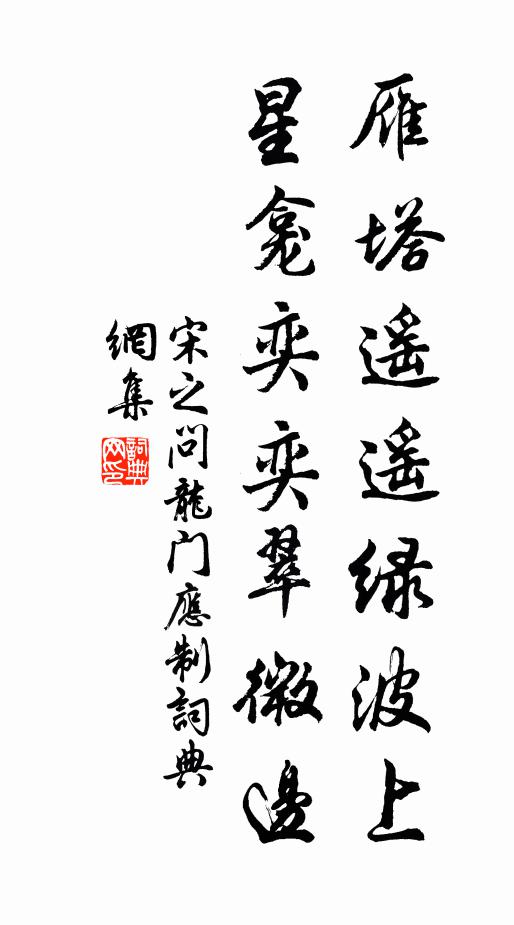 雁塔遥遥绿波上
星龛奕奕翠微邊
宋之问龍门應制詞典
網集
詞典网印